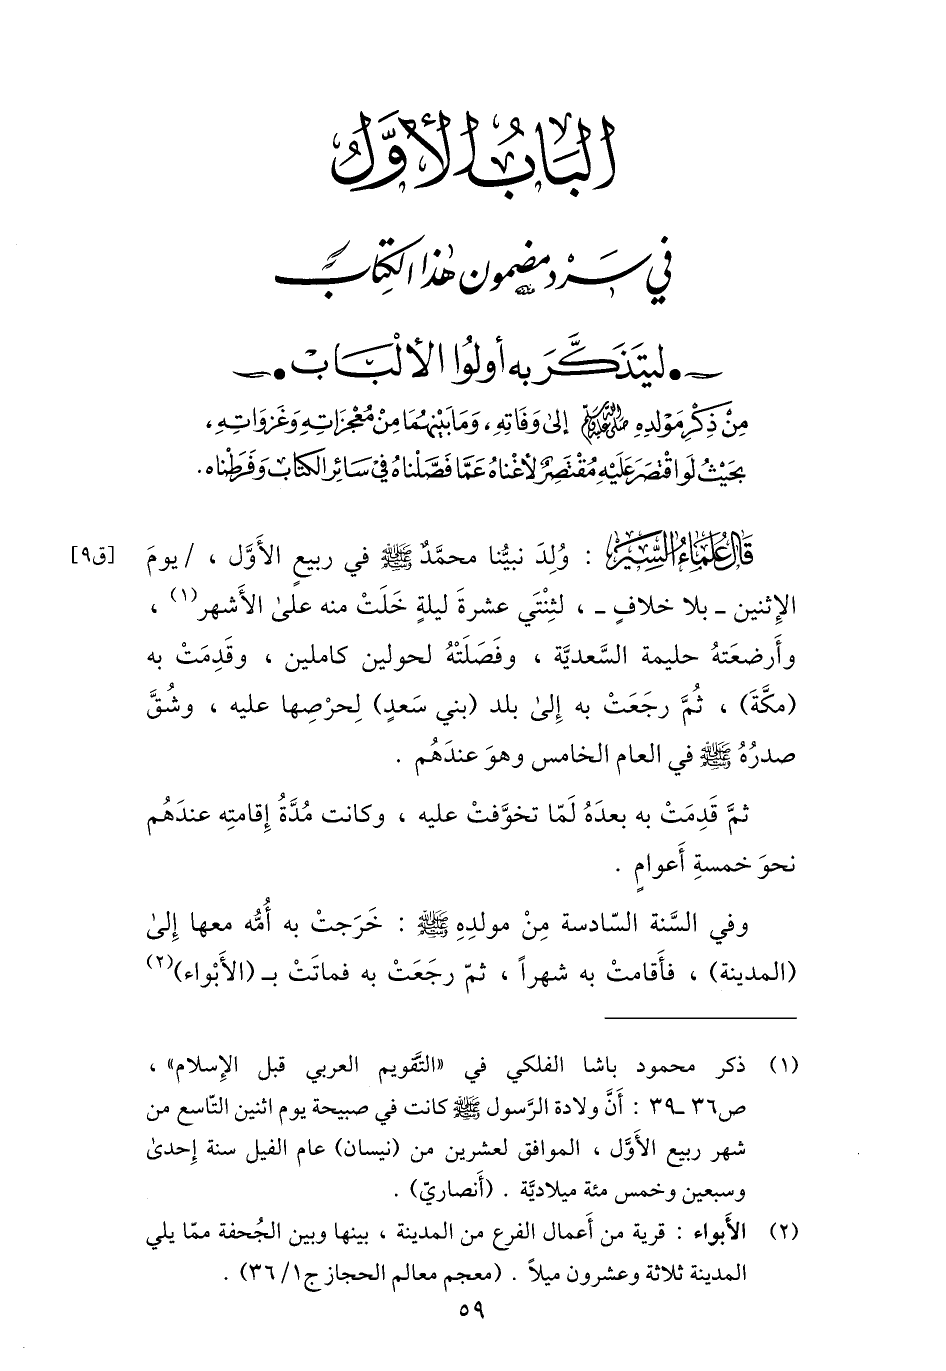 البَابُ الأَوَّلُ
في سَرْد مضمون هٰذا الكِتاب
ليَتَذَكَّرَ به أولُوا الألْبَاب
مِنْ ذِكْرِ مَوْلِدِهِ ﷺ إلىٰ وَفَاتِهِ ، وَمَا بَيْنَهُمَا مِنْ مُعْجِزَاتِهِ وَغَزَوَاتِهِ ،
بحَيْثُ لَوِ اقْتَصَرَ عَلَيْهِ مُقْتَصِرٌ لأَغْناهُ عَمَّا فَصَّلْناهُ فيْ سَائِرِ الكتَابِ وَفَرَطْناه .
قَالَ عُلَمَاءُ السِّيَرِ : وُلِدَ نبيُّنا محمَّدٌ ﷺ في ربيعٍ الأَوَّل ، / يومَ [ق٩]
الإِثنين ـ بلا خلافٍ ـ ، لثِنْتَي عشرةَ ليلةٍ خَلَتْ منه علىٰ الأَشهر(١) ،
وأَرضعَتهُ حليمة السَّعديَّة ، وفَصَلَتْهُ لحولين كاملين ، وقَدِمَتْ به
(مكَّةَ) ، ثُمَّ رجَعَتْ به إِلىٰ بلد (بني سَعدٍ) لِحرْصِها عليه ، وشُقَّ
صدرُهُ ﷺ في العام الخامس وهوَ عندَهُم .
ثمَّ قَدِمَتْ به بعدَهُ لَمّا تخوَّفتْ عليه ، وكانت مُدَّةُ إِقامتِه عندَهُم
نحوَ خمسةِ أَعوامٍ .
وفي السَّنة السّادسة مِنْ مولدِهِ ﷺ : خَرَجتْ به أُمُّه معها إِلىٰ
(المدينة) ، فأَقامتْ به شهراً ، ثمّ رجَعَتْ به فماتَتْ بـ (الأَبْواء)(٢)
(١) ذكر محمود باشا الفلكي في «التَّقويم العربي قبل الإِسلام» ،
ص٣٦ـ٣٩ : أَنَّ ولادة الرَّسول ﷺ كانت في صبيحة يوم اثنين التّاسع من
شهر ربيع الأَوَّل ، الموافق لعشرين من (نيسان) عام الفيل سنة إِحدىٰ
وسبعين وخمس مئة ميلاديَّة . (أَنصاريّ) .
(٢) الأَبواء : قرية من أَعمال الفرع من المدينة ، بينها وبين الجُحفة ممّا يلي
المدينة ثلاثة وعشرون ميلاً . (معجم معالم الحجاز ج١/ ٣٦) .
٥٩